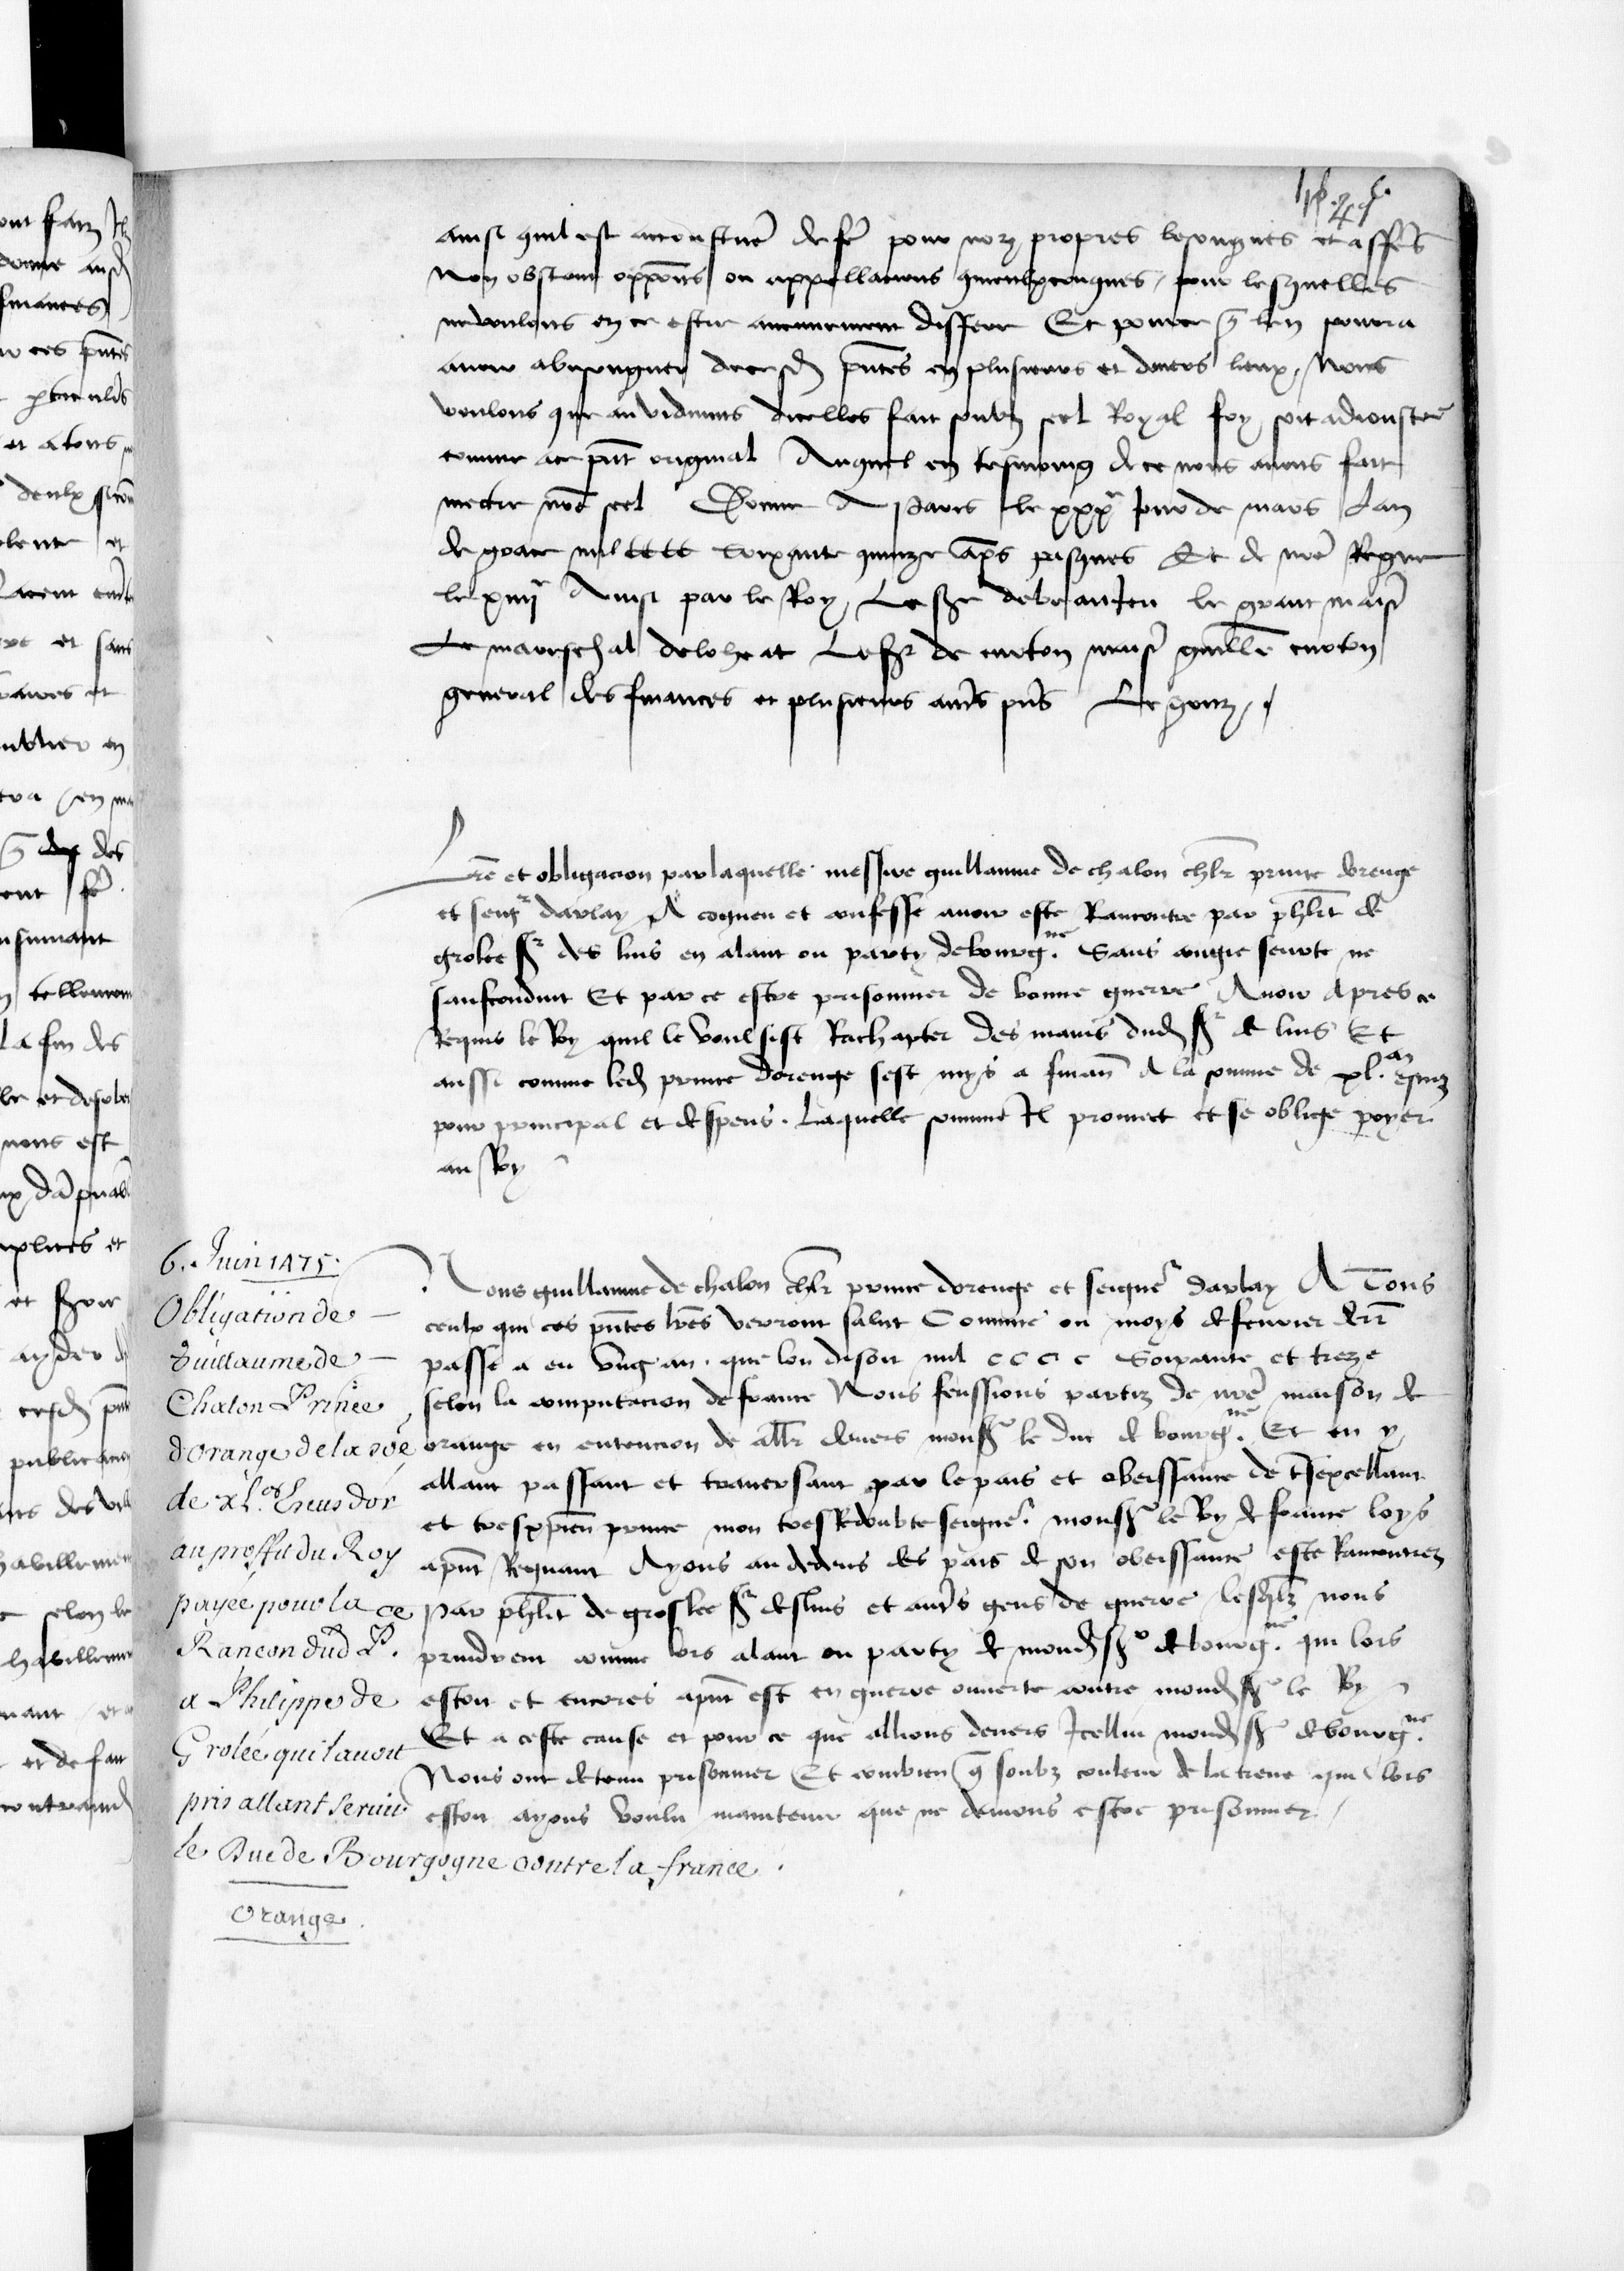 ainsi quil est acoustume de fe pour noz propres besongnes et affes
Non obstant opposons ou appellacions quelxconques, pour lesquelles
ne voulons en ce estre aucunement differe Et pource q len pourra
avoir abesongner de cesd pntes en plusieurs et divers lieux, Nous
voulons que au vidimus dicelles fait soubz seel Royal foy soit adioustee
comme a ce pnt original Auquel en tesmoing de ce nous avons fait
mectre nre seel Donne A Paris le xxxe jour de mars Lan
de grace mil cccc soixante quinze aps pasques Et de nre Regne
le xiiii Ainsi par le Roy, Le sire de le grant maist
Le mareschal de loheac Le sr de curton maist guille
general des finances et plusieurs autrs pns Le gouz
Lre et obligacion par laquelle messire guillaume de chalon chlr prince dorenge
et seigr darlay A cogneu et confesse avoir este Rancontre par phlt de
grolee sr des luis en alant ou party de bourgne. Sans congie seurte ne
saufconduit Et par ce estre prisonnier de bonne guerre Avoir apres ce
Requis le Roy quil le voulsist Rachapter des mains dud sr de luis Et
aussi comme led prince dorenge sest mys a finan A la somme de xl. m escuz
pour principal et despens. Laquelle somme Il promect et se oblige poyer
au Roy
6. Juin 1475.
Obligation de
Guillaume de
Chalon Prince
d'orange de la soe
de xl. m Escus dor
au proffit du Roy
payée pour la
Rancon dud P.
a Philippes de
Grolée qui l'avoit
pris allant servir
le Duc de Bourgogne contre la france.
Orange.
Nous guillaume de chalon chlr prince dorenge et seigner darlay A Tous
ceulx qui ces pntes lres verront salut Comme ou moys de fevrier derr
passe a eu ung an. que lon disoit mil c c c c Soixante et treze
selon la computacion de france Nous feussions partiz de nre maison de
orange en entencion de allr devers monsr le duc de bourgne. Et en y
allant passant et traversant par le pais et obeissance de ts excellant
et tres xpien prince mon tres Redoubte seigner. monsr le Roy de france loys
apnt Regnant Ayons au dedens des pais de son obeissance este Rancontrez
par phlt de groslee sr desluis et autrs gens de guerre lesqlz nous
prindrent comme lors alant ou party de mond sr de bourgne. qui lors
estoit et encores apnt est en guerre ouverte contre mond sr le Roy
Et a ceste cause et pour ce que allions devers Icellui mond sr de bourgne.
Nous ont detenu prisonnier Et combien q soubz couleur de la treve qui lors
estoit ayons voulu maintenir que ne devions estre prisonnier